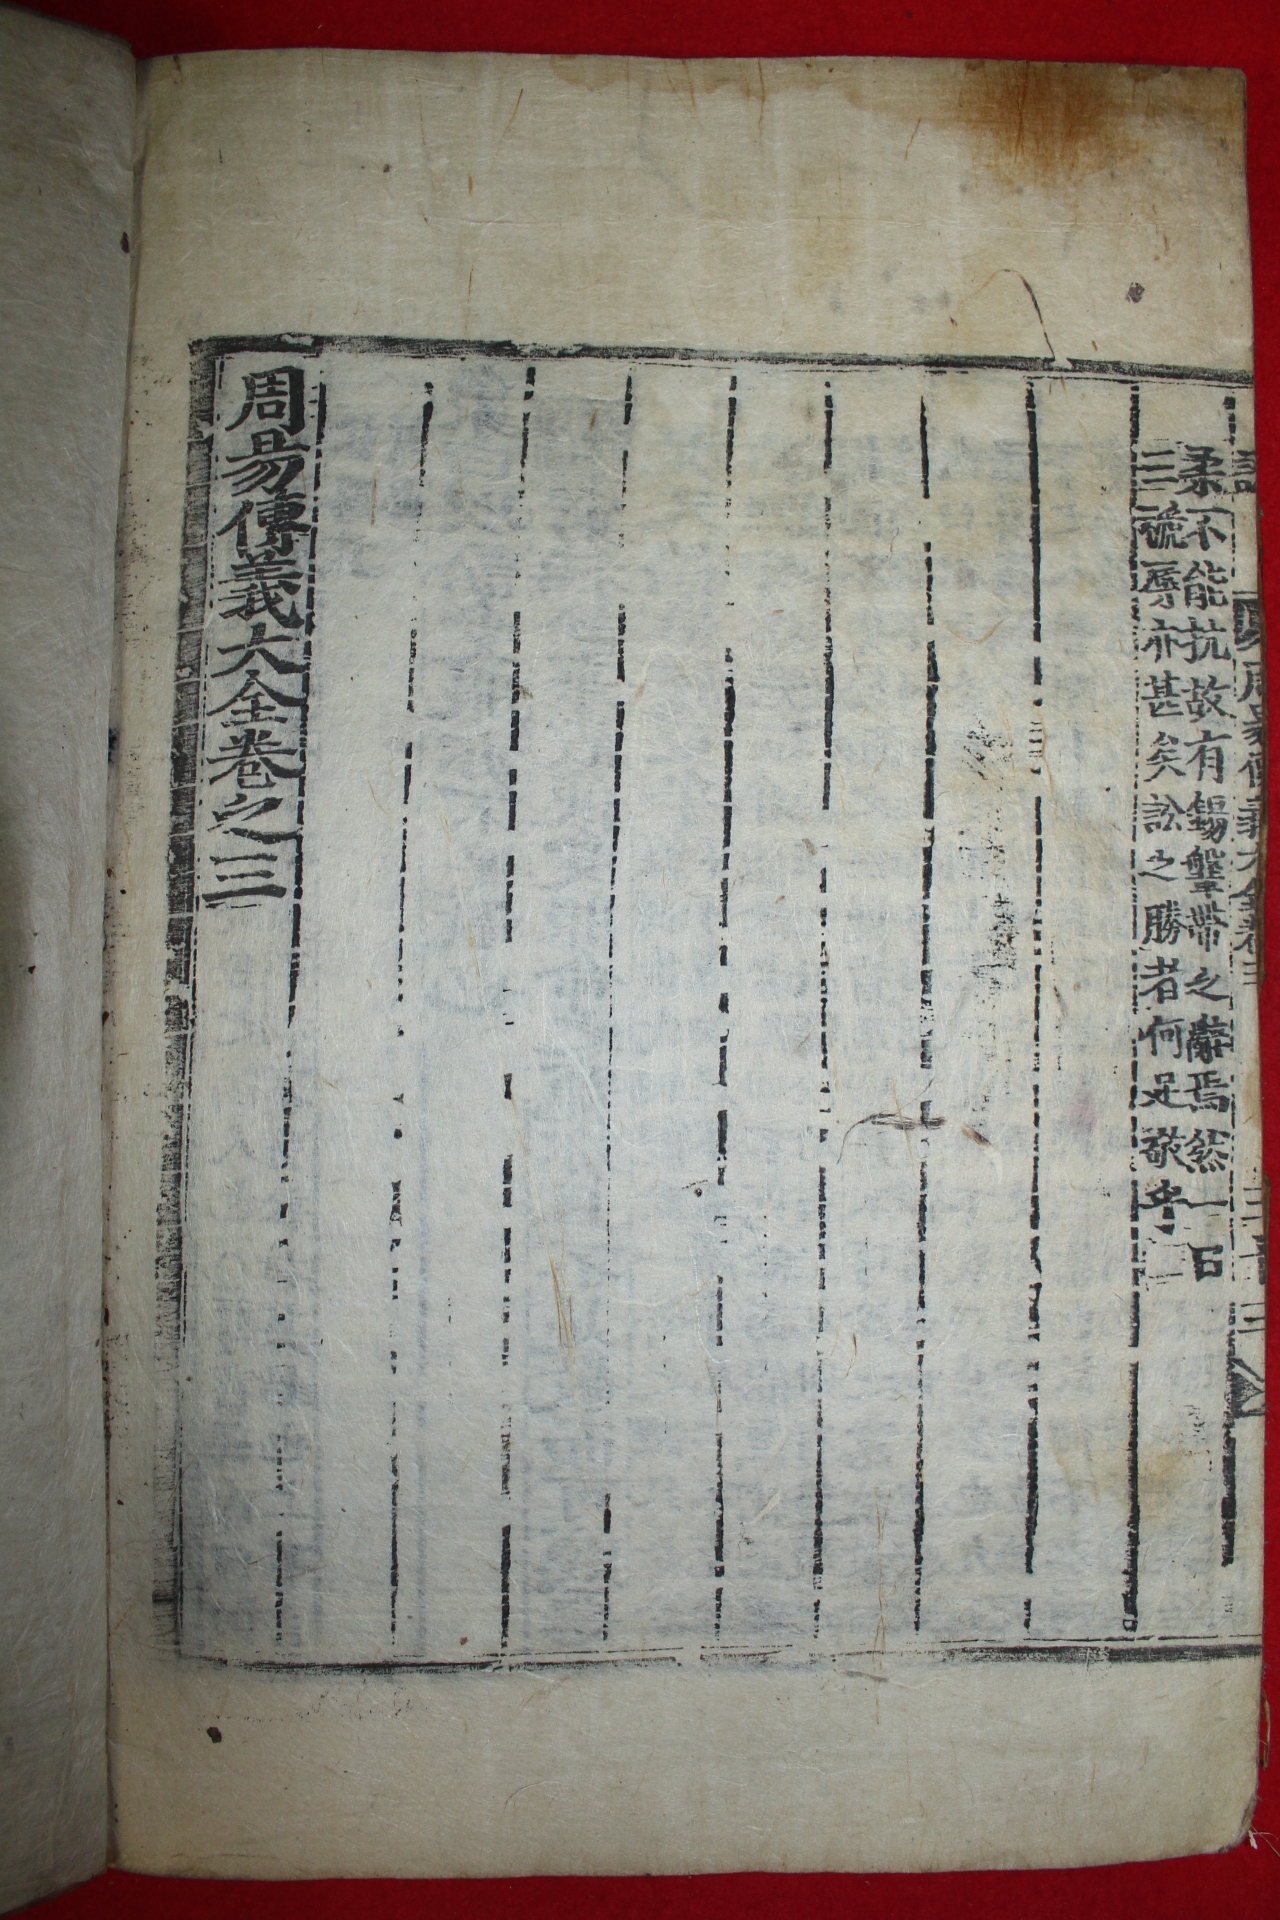 訟 周易傳義大全卷三
柔不能抗故有錫鞶帶之辭焉然一日
三褫辱亦甚矣訟之勝者何足敬乎
周易傳義大全卷之三